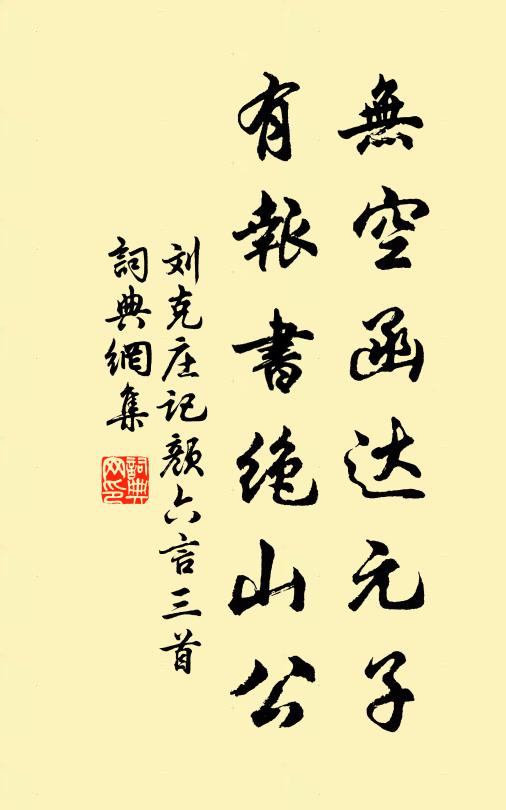 無空函达元子
有報書绝山公
刘克庄记颜六言三首
詞典網集
詞典網印